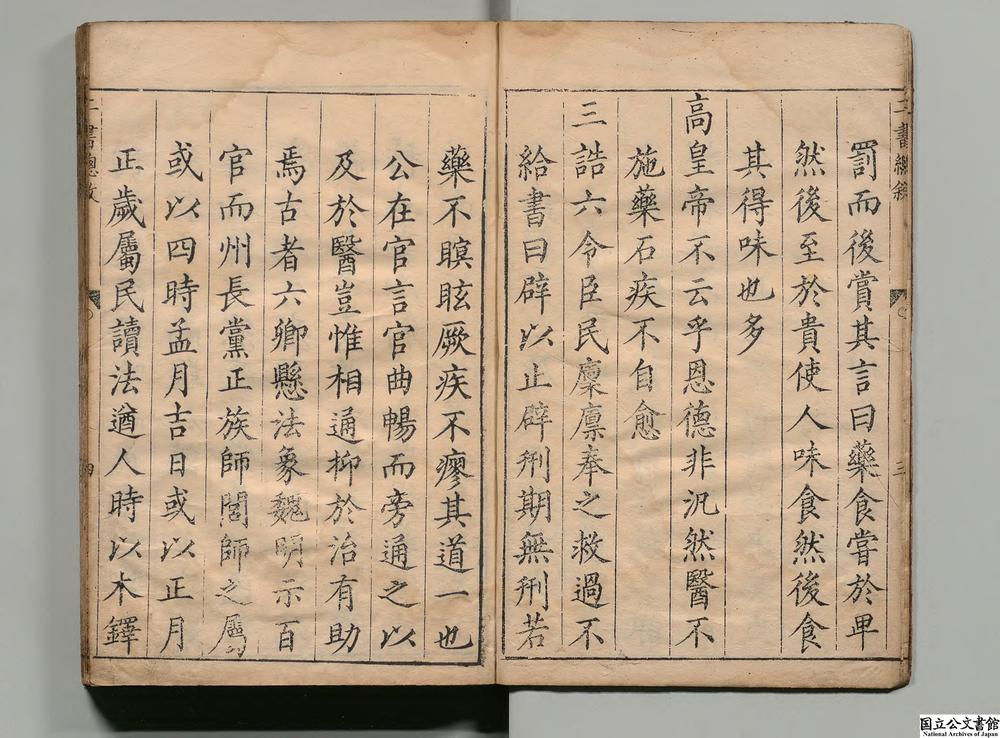 罰而後賞其言曰藥食嘗於卑
然後至於貴使人味食然後食
其得味也多
高皇帝不云乎恩德非汎然醫不
施藥石疾不自愈
三誥六令臣民廩廩奉之救過不
給書曰辟以止辟刑期無刑若
藥不瞑眩厥疾不瘳其道一也
公在官言官曲暢而旁通之以
及於醫豈惟相通抑於治有助
焉古者六卿懸法象魏明示百
官而州長黨正族師閭師之屬
或以四時孟月吉日或以正月
正歲屬民讀法遒人時以木鐸
二書總敘
三
四
国立公文書館
National Archives of Japan